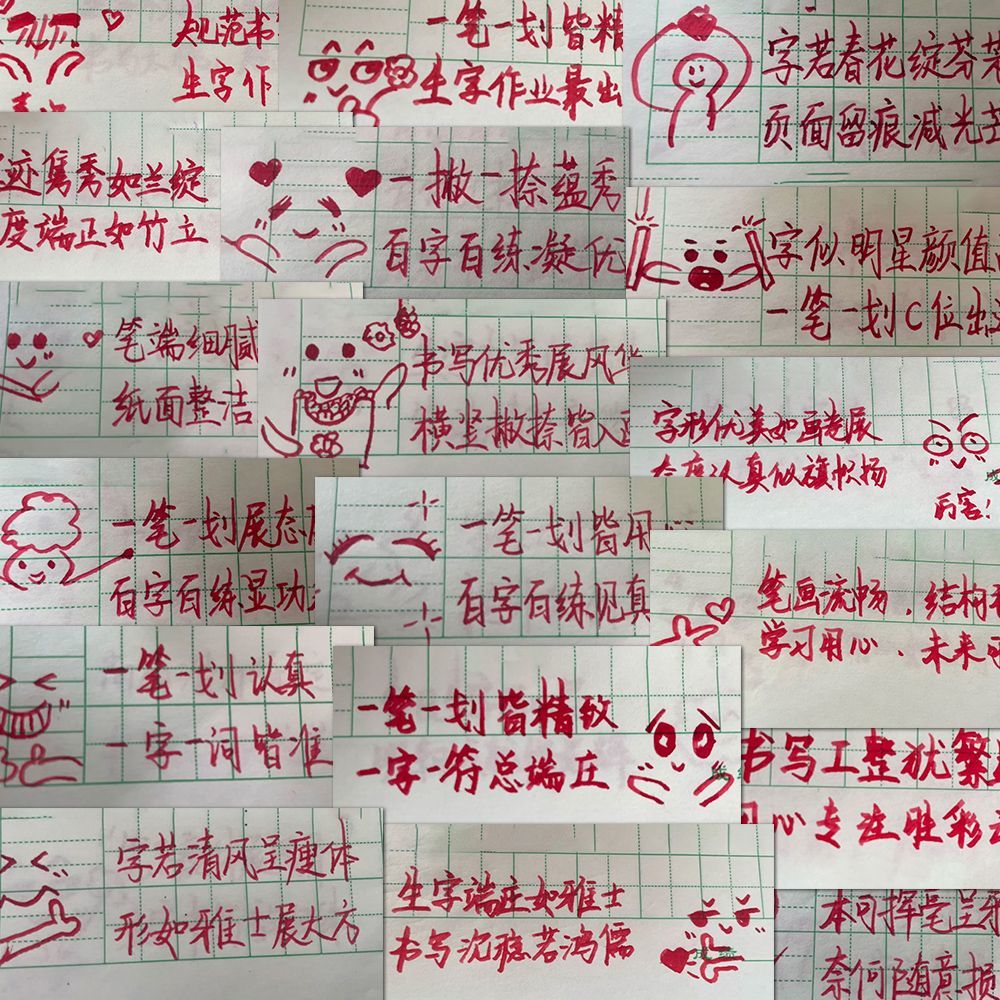 规范书
生字作
一笔一划皆精
生字作业最出
字若春花绽芬芳
页面留痕减光芒
迹隽秀如兰绽
度端正如竹立
一撇一捺蕴秀
百字百练凝优
字似明星颜值
一笔一划C位出
笔端细腻
纸面整洁
书写优秀展风华
横竖撇捺皆入画
字形优美如画卷展
态度认真似旗帜扬
厉害!
一笔一划展态
百字百练显功
一笔一划皆用
百字百练见真
笔画流畅,结构
学习用心,未来可
一笔一划认真
一字一词皆准
一笔一划皆精致
一字一符总端庄
书写工整犹繁
心专注胜彩
字若清风呈瘦体
形如雅士展大方
生字端庄如雅士
书写沉稳若鸿儒
本可挥毫呈雅
奈何随意损